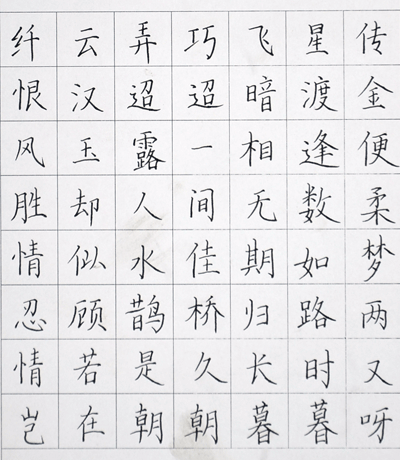 纤云弄巧飞星传
恨汉迢迢暗渡金
风玉露一相逢便
胜却人间无数柔
情似水佳期如梦
忍顾鹊桥归路两
情若是久长时又
岂在朝朝暮暮呀